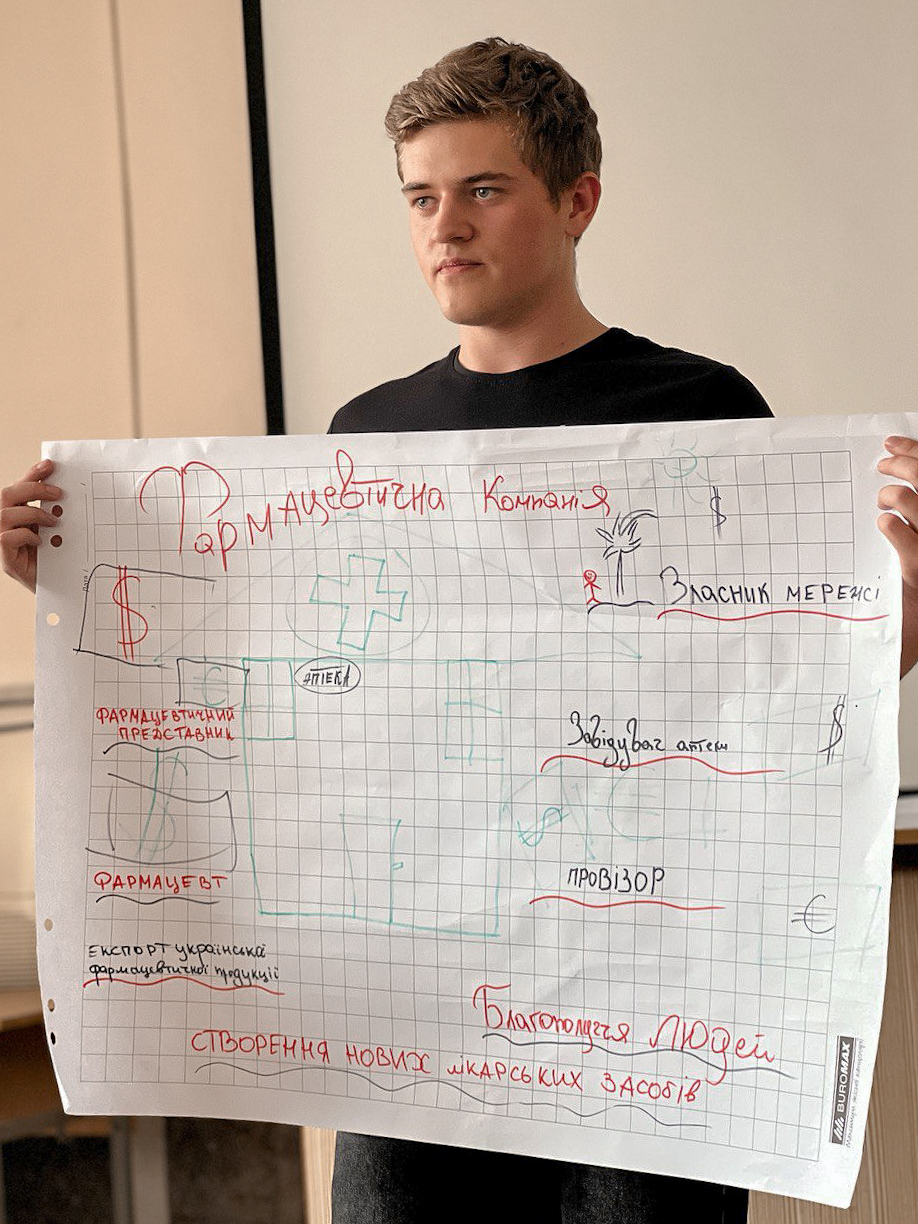 Фармацевтична Компанія
$
$
Зласник мережі
АПТЕКА
€
ФАРМАЦЕВТИЧНИЙ
ПРЕДСТАВНИК
Завідувач аптеки
$
$
$
€
ФАРМАЦЕВТ
ПРОВІЗОР
€
ЕКСПОРТ української
фармацевтичної продукції
Благополуччя ЛЮДей
СТВОРЕННЯ НОВИХ лІКАРСЬКИХ ЗАСОбів
BUROMAX